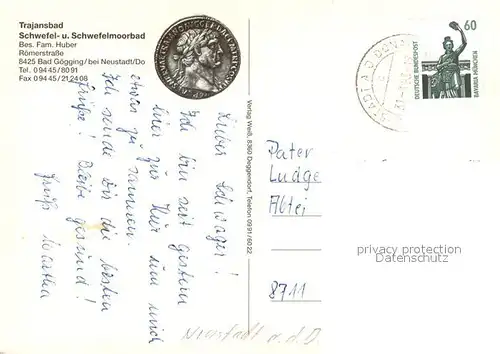 Trajansbad
Schwefel- u. Schwefelmoorbad
Bes. Fam. Huber
Römerstraße
8425 Bad Gögging/bei Neustadt/Do
Tel. 09445/8091
Fax 09445/212408
Lieber Schwager!
Ich bin seit gestern
hier zur Kur um mich
etwas zu
Ich sende Dir die besten
Grüße! Bleibe gesund!
Gruß Martha
Verlag Weiß, 8360 Deggendorf, Telefon 0991/6022
60
DEUTSCHE BUNDESPOST
BAVARIA MÜNCHEN
Pater
Ludge
Abtei
8711
privacy protection
Neustadt a. d. D.